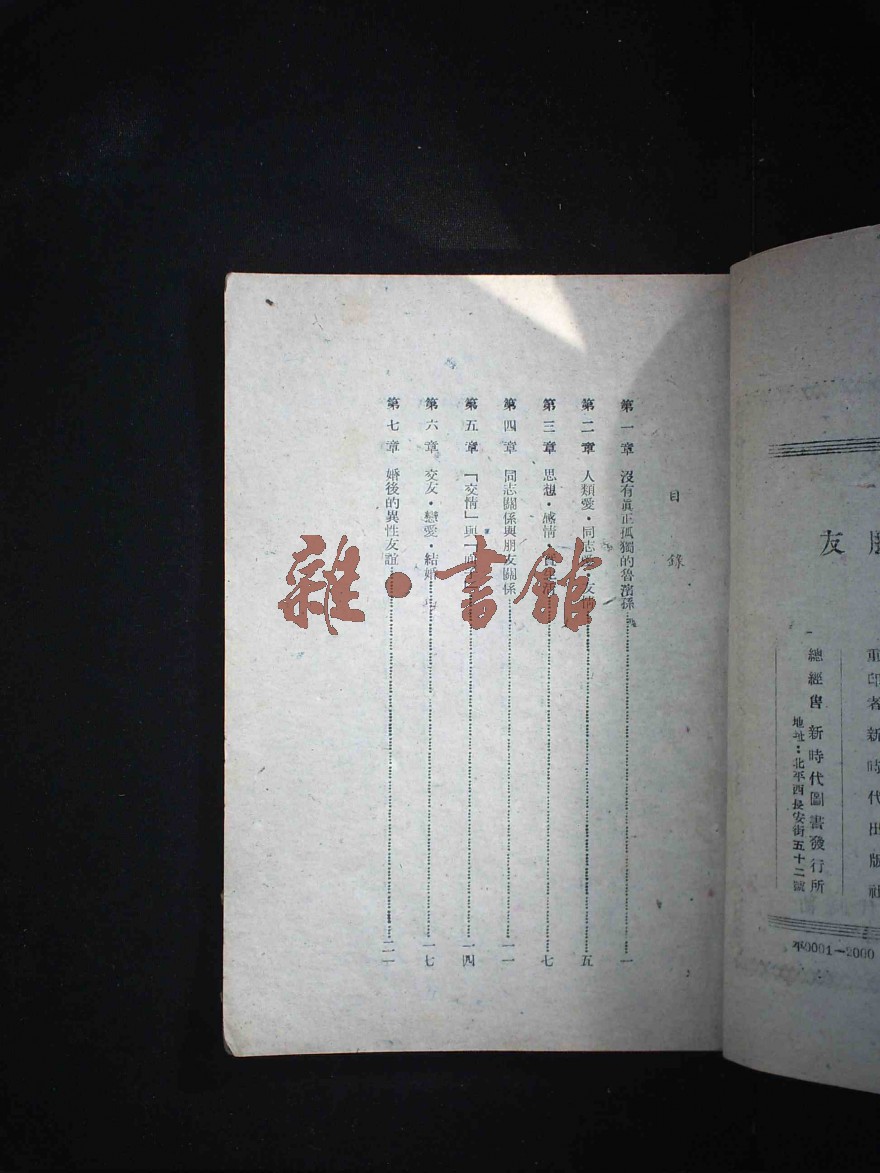 目錄
第一章 沒有眞正孤獨的魯濱孫 一
第二章 人類愛・同志愛・友情 五
第三章 思想・感情・ 七
第四章 同志關係與朋友關係 一一
第五章 「交情」與「面子 一四
第六章 交友・戀愛・結婚 一七
第七章 婚後的異性友誼 二一
2
友
重印者 新時代出版社
總經售 新時代圖書發行所
地址：北平西長安街五十二號
平0001—2000
雜・書館